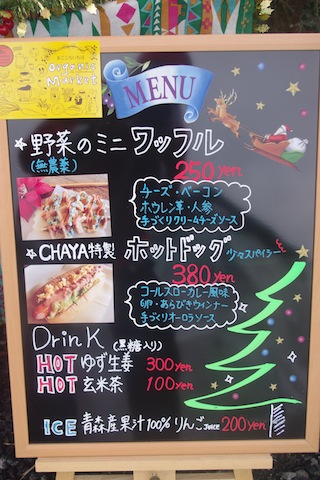 Organic
Market
MENU
★野菜のミニワッフル
(無農薬)
250yen
チーズ・ベーコン
ホウレン草・人参
手づくりクリームチーズソース
★CHAYA特製 ホットドッグ 少々スパイシー
380yen
コールスローカレー風味
卵・あらびきウィンナー
手づくりオーロラソース
Drink (黒糖入り)
HOT ゆず生姜 300yen
HOT 玄米茶 100yen
ICE 青森産果汁100%りんごJUICE 200yen